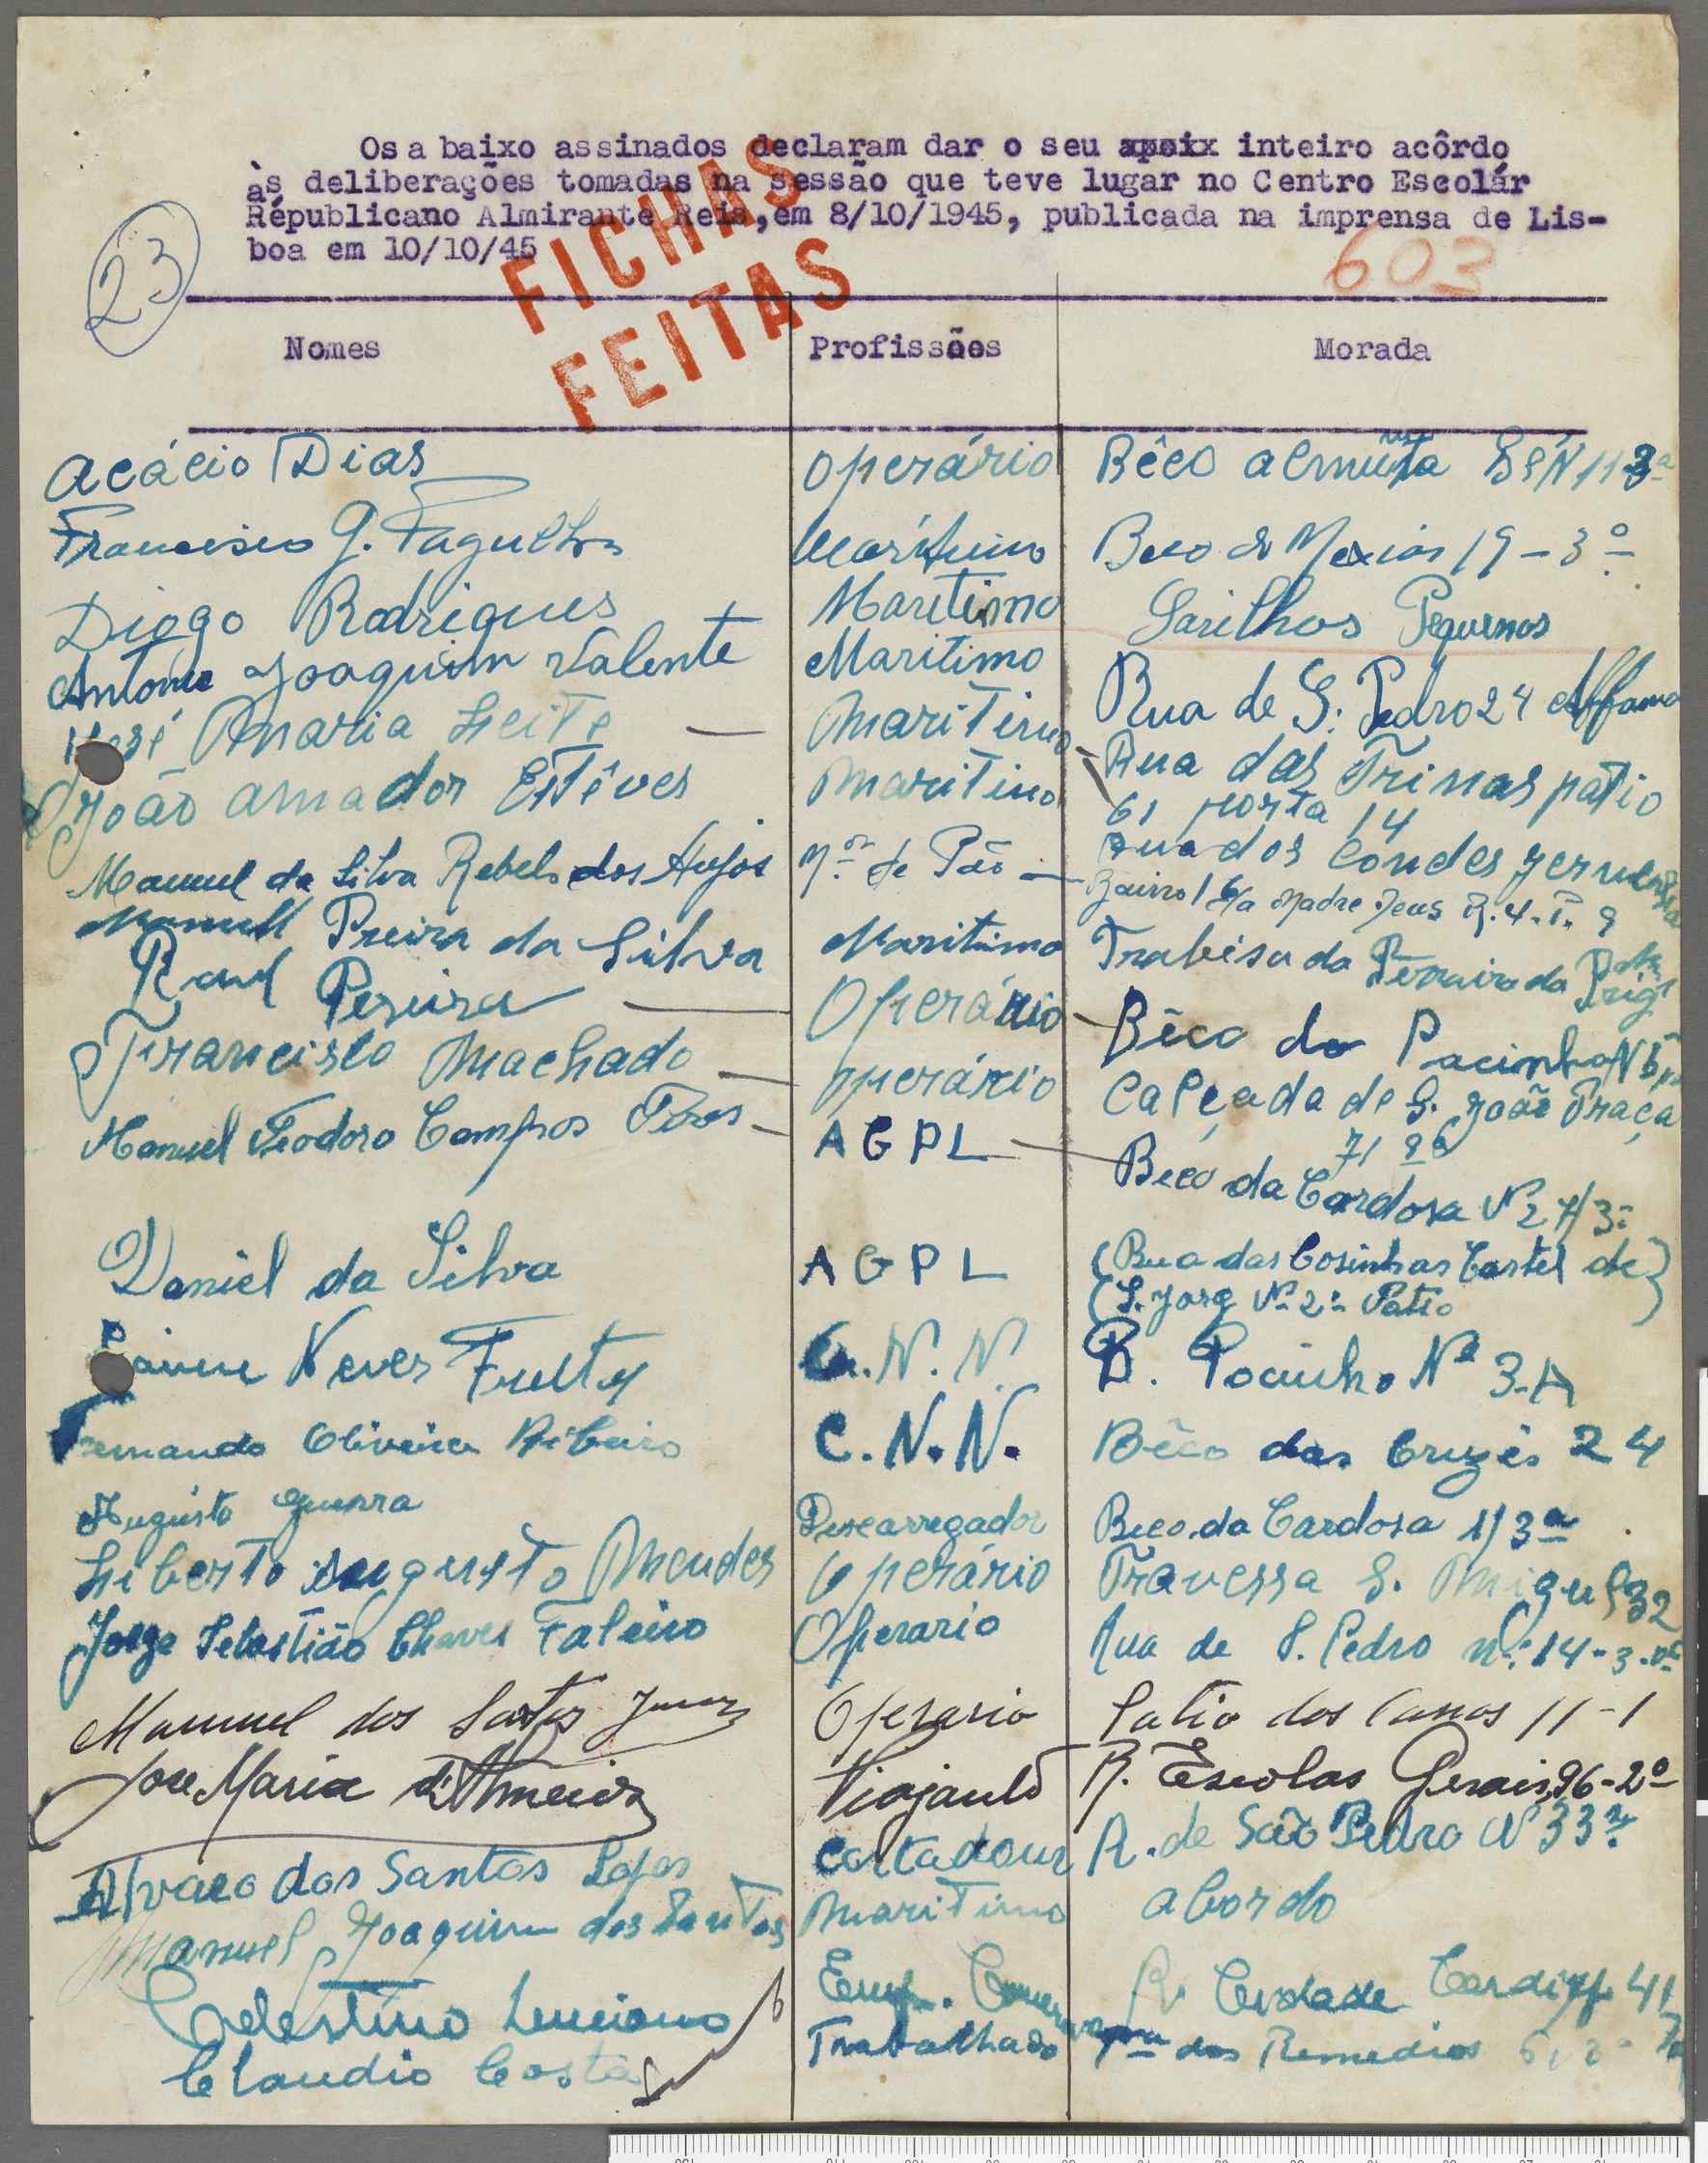 Os a baixo assinados declaram dar o seu apoix inteiro acôrdo
às deliberações tomadas na sessão que teve lugar no Centro Escolár
Républicano Almirante Reis, em 8/10/1945, publicada na imprensa de Lis-
boa em 10/10/45
23
FICHAS
FEITAS
603
Nomes Profissões Morada
Acácio Dias operário Bêco
Francisco G. Fagulha Marítimo Beco do Mexias 19-3º
Diogo Rodrigues Maritimo Sarilhos Pequenos
Antonio Joaquim Valente Maritimo Rua de S. Pedro 24 Alfama
José Maria Leite — Maritimo Rua das Trinas patio
61 porta 14
João amador Estêves maritimo Rua dos Condes
Manuel da Silva Rebelo dos Anjos de Pão — Bairro Madre Deus R. 4
Manuel Preira da Silva Maritimo Trabesa da
Raul Pereira — Operário Bêco do Pocinho
Francisco Machado — operário Calçada de S. João Praça
71
Manuel Teodoro Campos — A G P L — Beco da Cardosa Nº 27/3º
Daniel da Silva A G P L (Rua das Cosinhas Castel de)
(S. Jorg Nº 2º Patio)
Jaime Neves C. N. N. B. Pocinho Nº 3-A
Fernando Oliveira Ribeiro C. N. N. Bêco das Cruzes 24
Augusto Guerra Descarregador Beco da Cardosa 1/3º
Liberto augusto Mendes Operário Travessa S. Miguel 32
Jorge Sebastião Chaves Faleiro Operario Rua de S. Pedro nº 14-3.
Manuel dos Santos Operario Patio dos Canos 11-1
Jose Maria d'Almeida Viajante R. Escolas Gerais, 96-2º
Alvaro dos Santos Lopes R. de São Pedro Nº 33
Manuel Joaquim dos Santos maritimo abordo
Celestino Luciano Emp. R. Cidade Cardiff 41
Claudio Costa Trabalhado dos Remedios